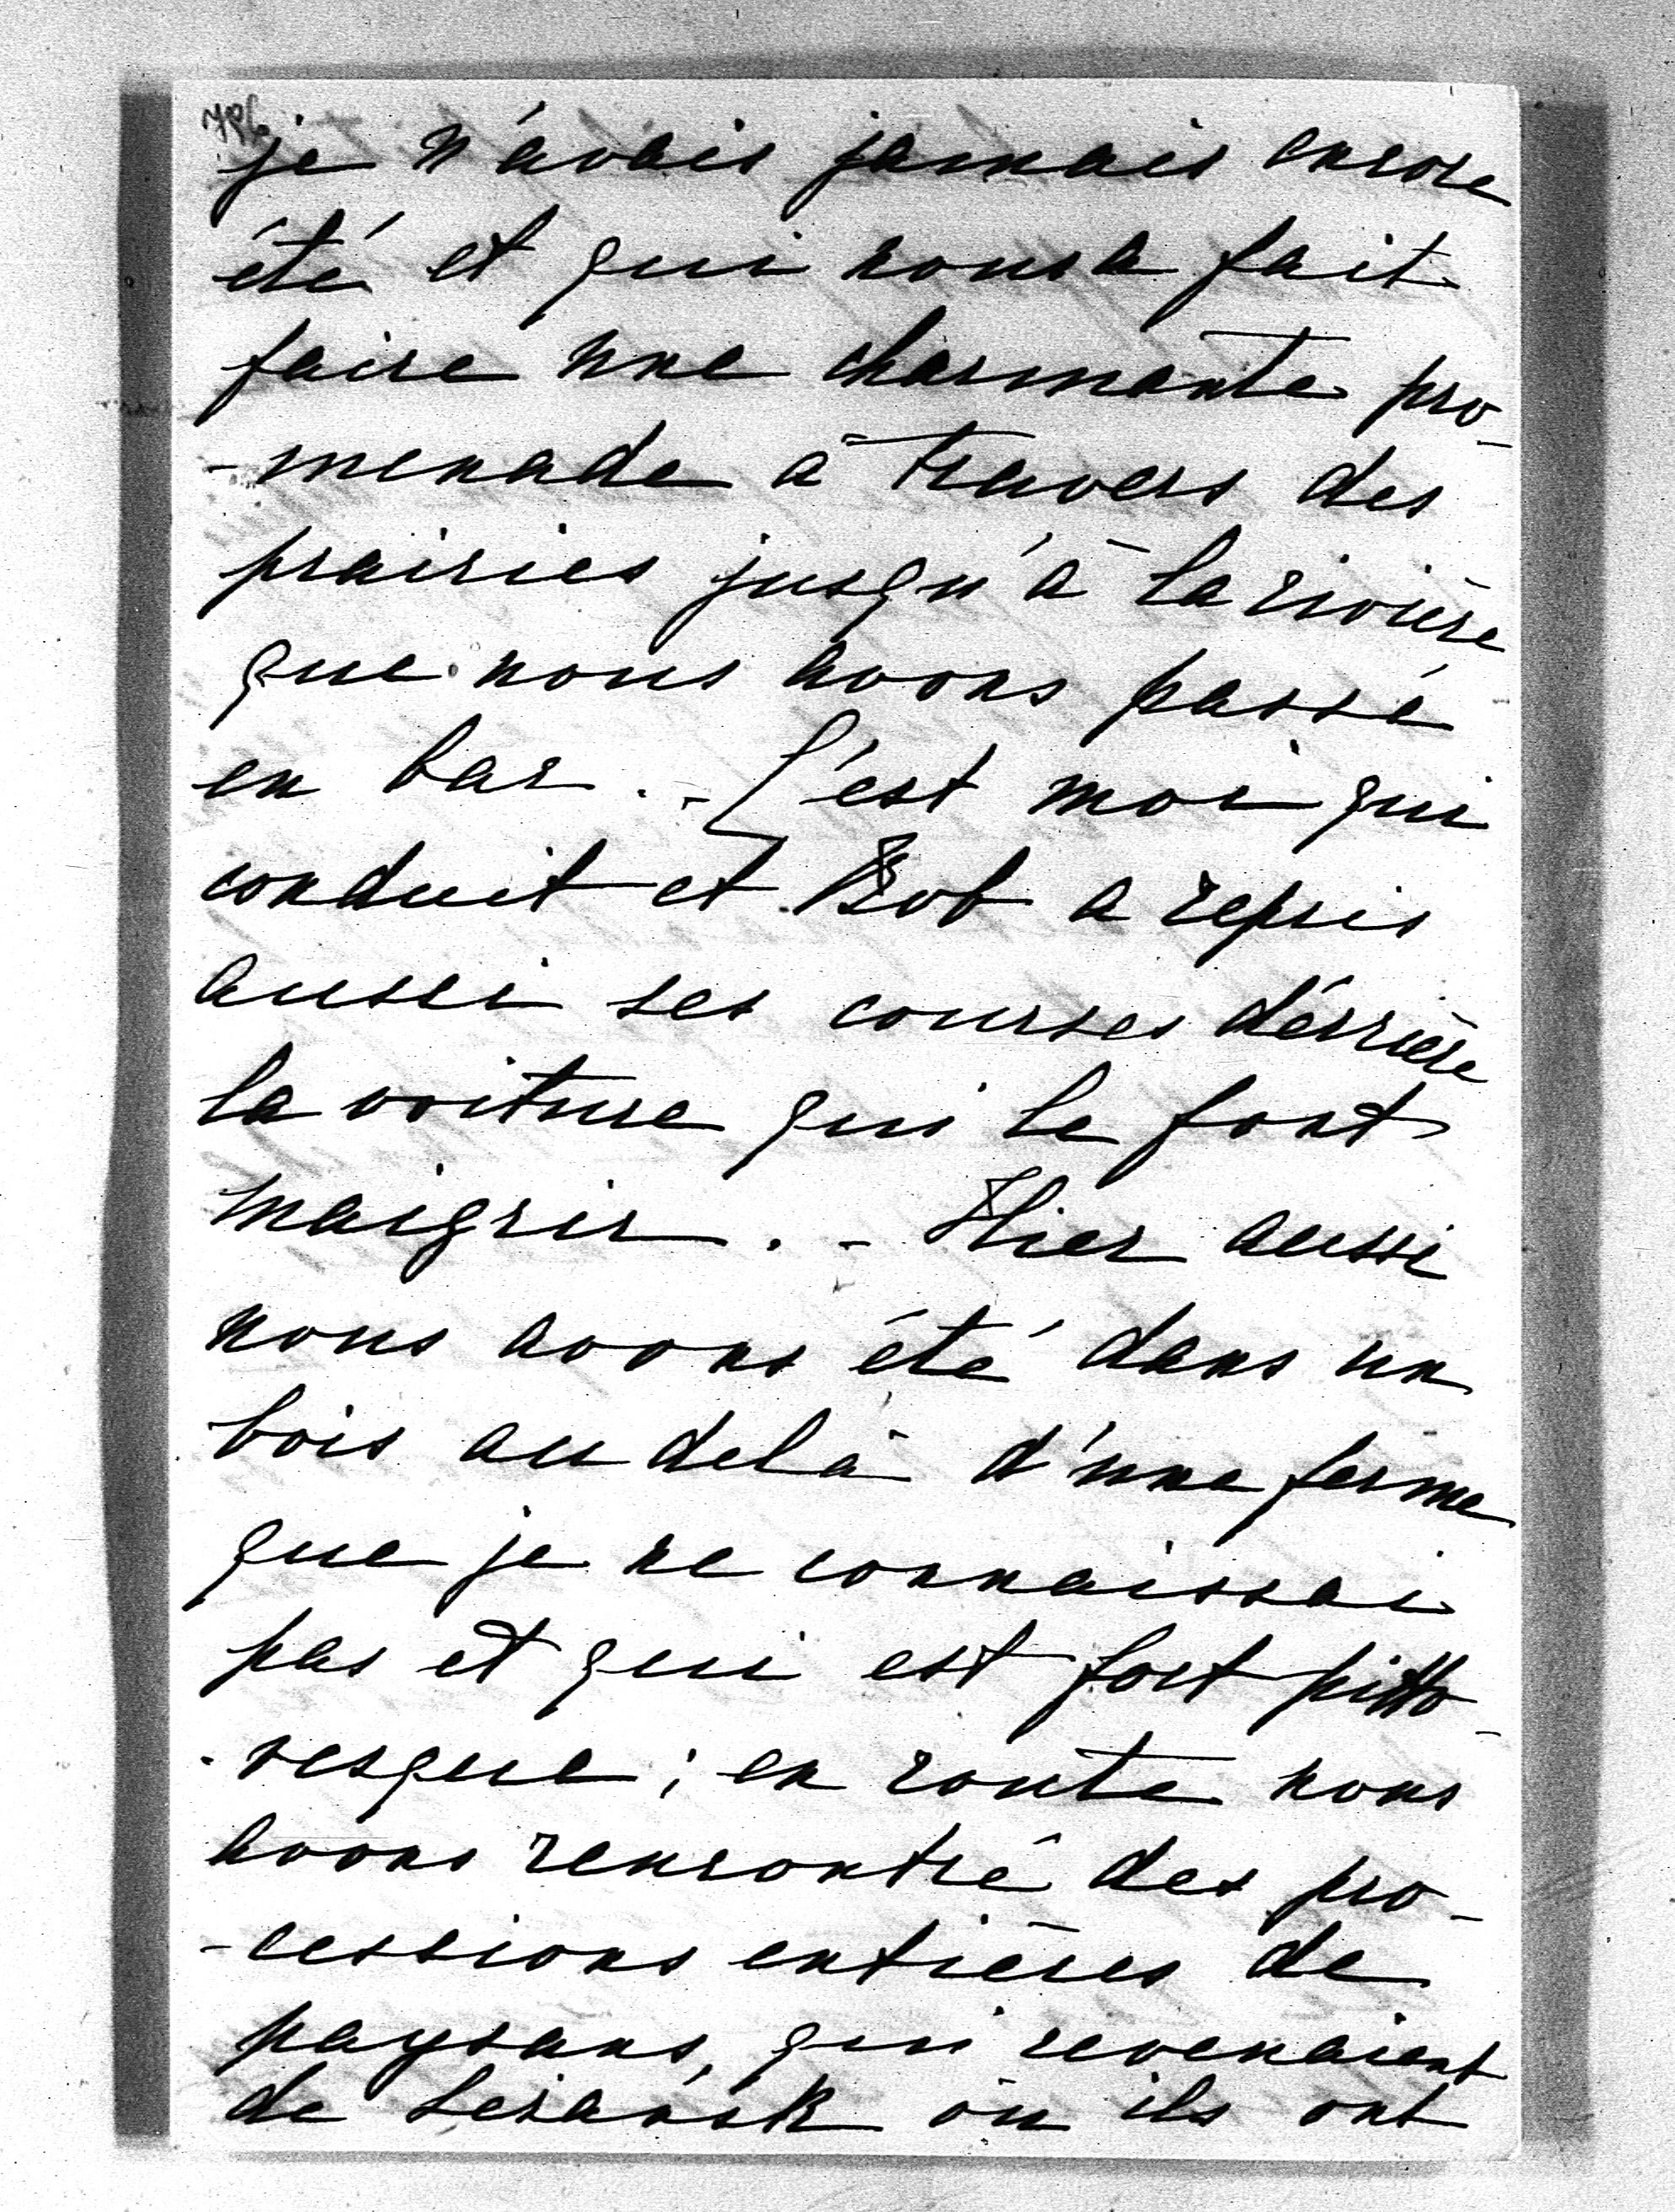 796
je n'avais jamais encore
été et qui nous a fait
faire une charmante pro-
-menade à travers des
prairies jusqu'à la rivière
que nous avons passé
en bac. - C'est moi qui
conduit et Bob a repris
aussi ses courses dérrière
la voiture qui le font
maigrir. - Hier aussi
nous avons été dans un
bois au delà d'une ferme
que je ne connaissai
pas et qui est fort pitto-
-resque ; en route nous
avons rencontré des pro-
-cessions entières de
paysans, qui revenaient
de Leżańsk où ils ont